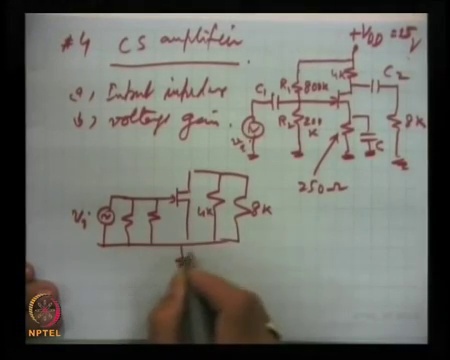 #4 CS amplifier
a, Input impedance
b, voltage gain.
+VDD = 25V
4K
C2
C1
R1
800K
R2
200
K
8K
C
Vi
250Ω
Vi
4K
8K
NPTEL